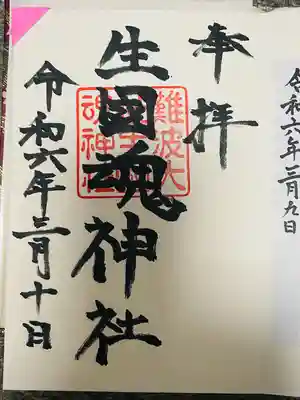 令和六年三月九日
奉拝
生國魂神社
難波大
魂神社
令和六年三月十日